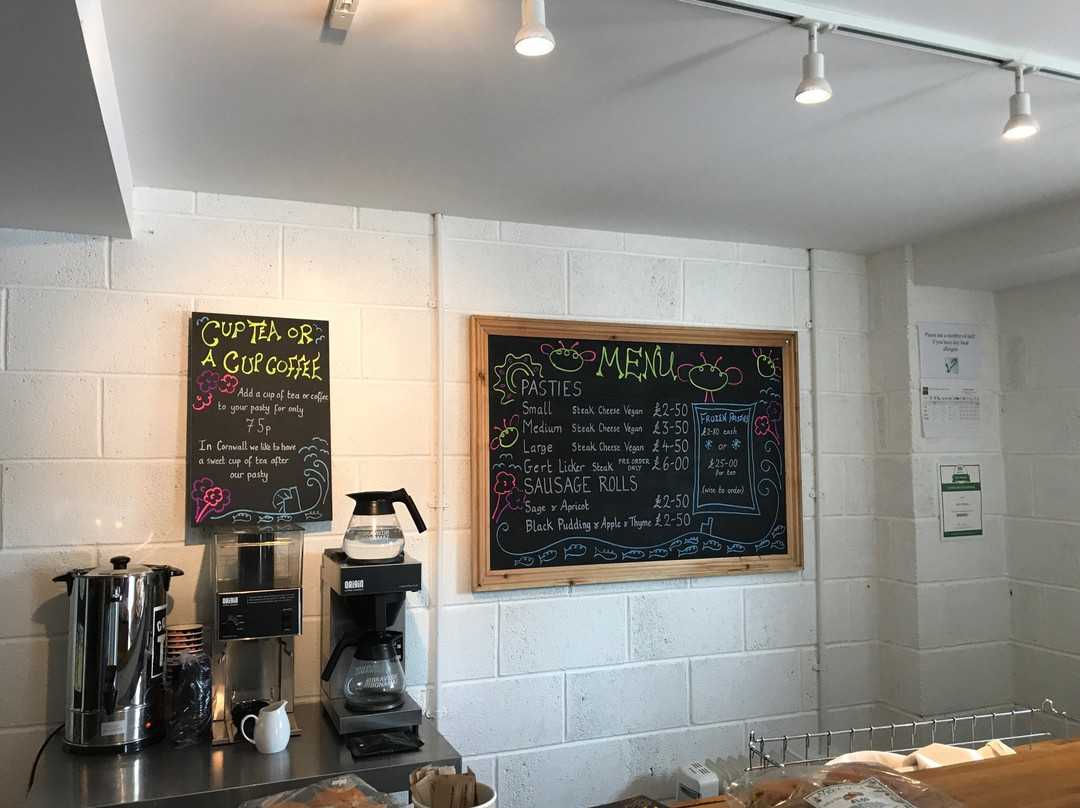 CUP TEA OR
A CUP COFFEE
Add a cup of tea or coffee
to your pasty for only
75p
In Cornwall we like to have
a sweet cup of tea after
our pasty
MENU
PASTIES
Small Steak Cheese Vegan £2-50
Medium Steak Cheese Vegan £3-50
Large Steak Cheese Vegan £4-50
Gert Licker Steak PRE ORDER ONLY £6-00
SAUSAGE ROLLS
Sage & Apricot £2-50
Black Pudding & Apple & Thyme £2-50
FROZEN PASTIES
£2-80 each
or
£25-00
for ten
(wise to order)
Please ask a member of staff
if you have any food
allergies
ORIGIN
ORIGIN